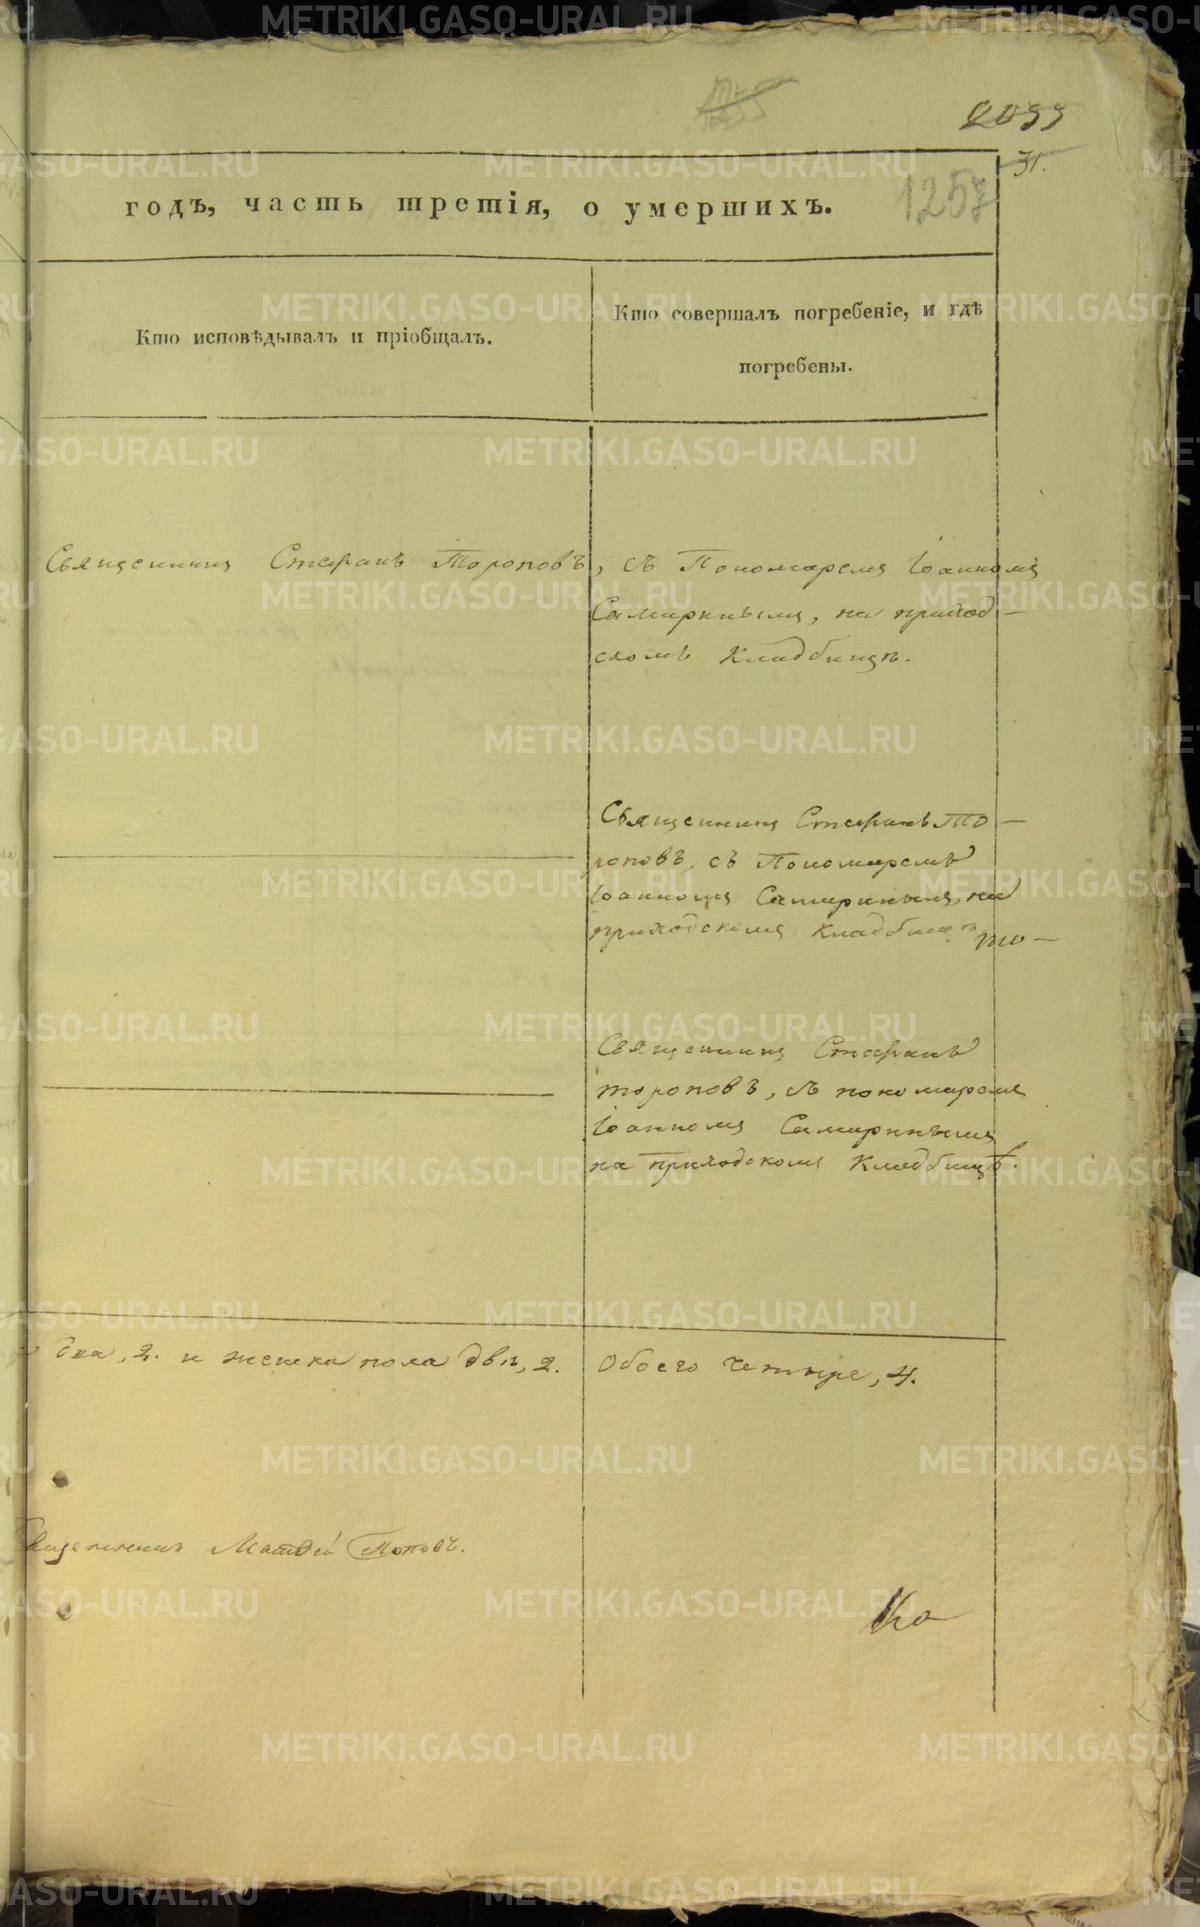 2099
31.
1257
годъ, часть третія, о умершихъ.
Кто исповѣдывалъ и пріобщалъ.
Кто совершалъ погребеніе, и гдѣ
погребены.
Священникъ Стефанъ Тороповъ, съ Пономаремъ Іоанномъ
Самаринымъ, на приход-
скомъ Кладбищѣ.
Священникъ Стефанъ То-
роповъ, съ Пономаремъ
Іоанномъ Самаринымъ, на
приходскомъ Кладбищѣ
то-
Священникъ Стефанъ
тороповъ, съ пономаремъ
Іоанномъ Самаринымъ
на приходскомъ Кладбищѣ.
два, 2. и женска пола двѣ, 2.
Обоего четыре, 4.
Священникъ Матѳей Поповъ.
Ко
METRIKI.GASO-URAL.RU